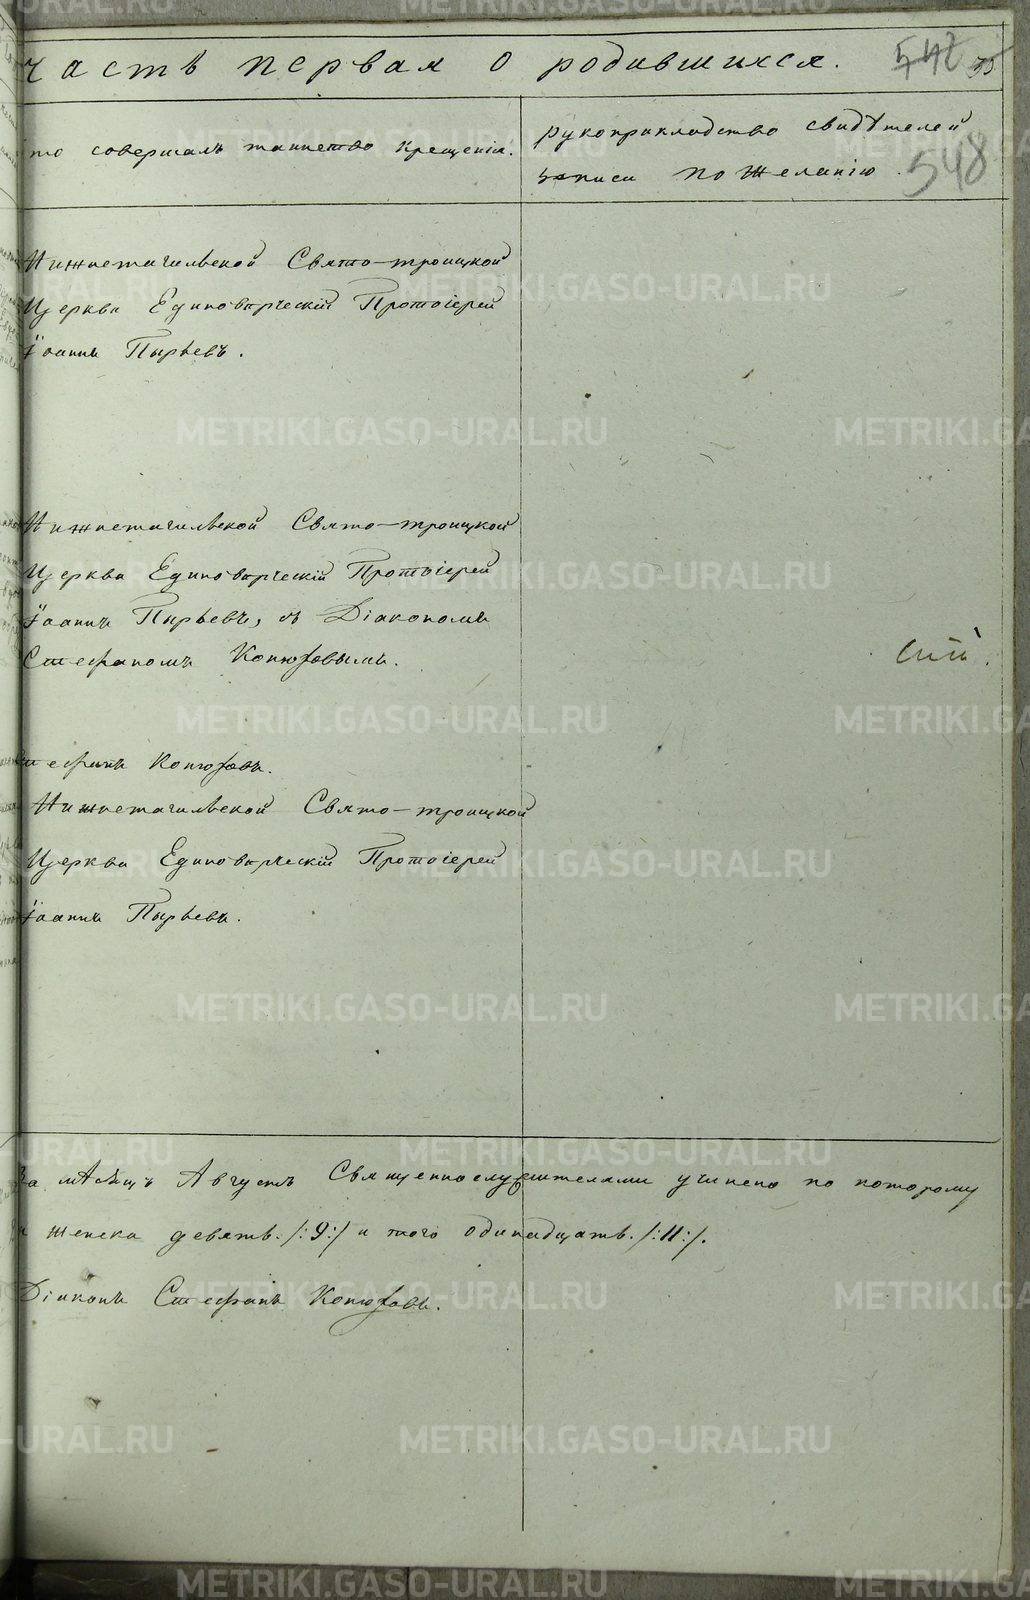 часть первая о родившихся. 542 55
548
то совершалъ таинство крещенія.
рукоприкладство свидѣтелей
записи по желанію.
Нижнетагильской Свято-троицкой
Церкви Единоверческій Протоіерей
Іоаннъ Пырьевъ.
Нижнетагильской Свято-троицкой
Церкви Единоверческій Протоіерей
Іоаннъ Пырьевъ, съ Діакономъ
Стефаномъ Конюховымъ.
Стефанъ Конюховъ.
Нижнетагильской Свято-троицкой
Церкви Единоверческій Протоіерей
Іоаннъ Пырьевъ.
За мѣсяцъ Августъ Священнослужителями учинено по которому
женска девять /:9:/ и того одинадцать /:11:/.
Діаконъ Стефанъ Конюховъ.
METRIKI.GASO-URAL.RU